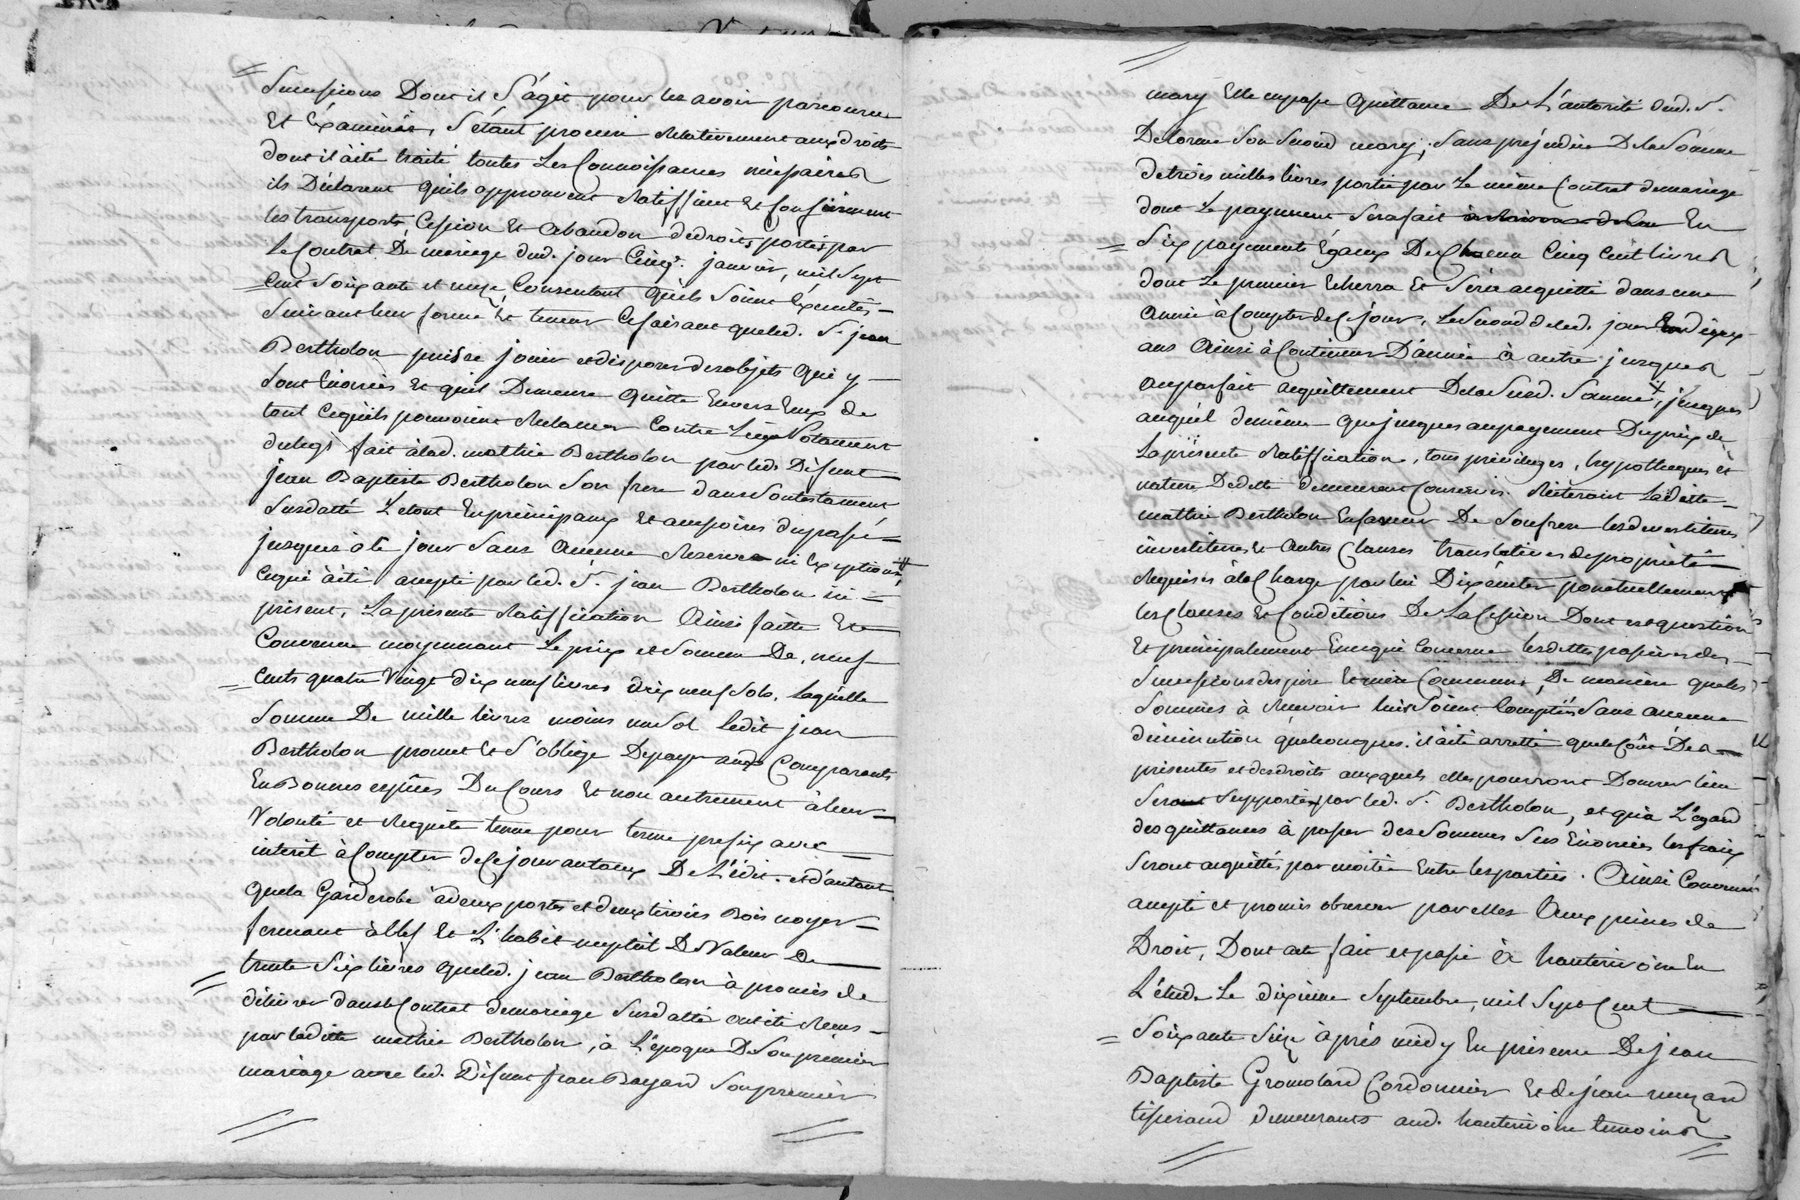 Successions Dont il S'ágit pour les avoir parcourus
Et Examinés, S'étant procuré Relativement aux droits
dont il à été traité toutes Les Connoissances nécessaires
ils Déclarent qu'ils approuvent Ratiffient Et Confirment
les transports, Cession Et abandon de droits, portés par
Le Contrat De mariage dud. jour Cinq.e janvier, mil Sept
Cent Soixante et onze, Consentent qu'ils Soient Exécutés
Suivant leur forme Et teneur Ce faisant que led. S.r jean
Bertholon puisse jouir et disposer des objets qui y
Sont Enoncés Et qu'il Demeure quitte Envers Eux de
tout ce qu'ils pourroient Réclamer Contre Lui Notament
du legs fait à lad. mathie Bertholon par led. Défunt
jean Baptiste Bertholon Son frere dans Son testament
Susdatté Le tout En principaux Et accessoires du passé
jusques à Ce jour Sans Aucune Reserve ni Exception #
Ce qui à été accepté par led. S.r jean Bertholon ici
présent, La présente Ratiffication Ainsi faitte Et
Convenue moyennant Le prix et Somme De, neuf
Cents quatre Vingt dix neuf livres dix neuf Sols. laquelle
Somme De mille livres moins un Sol ledit jean
Bertholon promet Et S'oblige De payer auxd. Comparants
En Bonnes espêces Du Cours Et non autrement à leur
Volonté et Requête tenue pour terme prefix avec
interêt à Compter de Ce jour au taux De L'édit. et d'autant
que la Garderobe à deux portes et deux tiroirs Bois noyer
fermant à Clef Et L'habit nuptial De Valeur De
trente Six livres que led. jean Bertholon à promis de
délivrer dans le Contrat de mariage Susdatté ont été Remis
par ladite mathie Bertholon, à L'époque De Son prémier
mariage avec led. Défunt jean Bayard Son premier
mary Elle en passe quittance De L'autorité dud. S.
Delorme Son Second mary; Sans préjudice De la Somme
de trois milles livres portée par Le même Contrat de mariage
dont Le payement Sera fait En
Six payements Egaux De Chacun Cinq Cent livres
dont Le premier Echerra Et Séra acquitté dans une
Année à Compter de Ce jour, Le Second dud. jour En deux
ans Ainsi à Continuer D'année à autre jusques
au parfait acquittement De la Sud. Somme +, jusques
auquel de même que jusques au payement Du prix de
La présente Ratiffication, tous privileges, hypotheques et
nature De dette demeurent Conservés. Réiterant Laditte
mathie Bertholon En faveur De Son frere les devestitures
investitures Et Autres Clauses translatives de propriété
Requises à la Charge par lui D'éxécuter ponctuellement
les Clauses Et Conditions De La Cession Dont est question
Et principalement En ce qui Concerne les dettes passives des
Successions des pere Et mere Communs, De maniere que les
Sommes à Recevoir lui Soient Comptées Sans aucune
diminution quelconques. il à été arretté que le Coût Des
présentes et des droits auxquels elles pourront Donner lieu
Seront Supportés par led. S. Bertholon, et qu'à L'égard
des quittances à passer des Sommes Sus Enoncées les fraix
Seront acquittés par moitié Entre les parties. Ainsi Convenu
accepté et promis observer par elles Aux peines de
Droit, Dont acte fait et passé à hauterivoire En
L'étude Le dixieme Septembre, mil Sept Cent
Soixante Seize àprés midy En présence De jean
Baptiste Gromoland Cordonnier Et de jean
tisserand demeurants aud. hauterivoire temoins